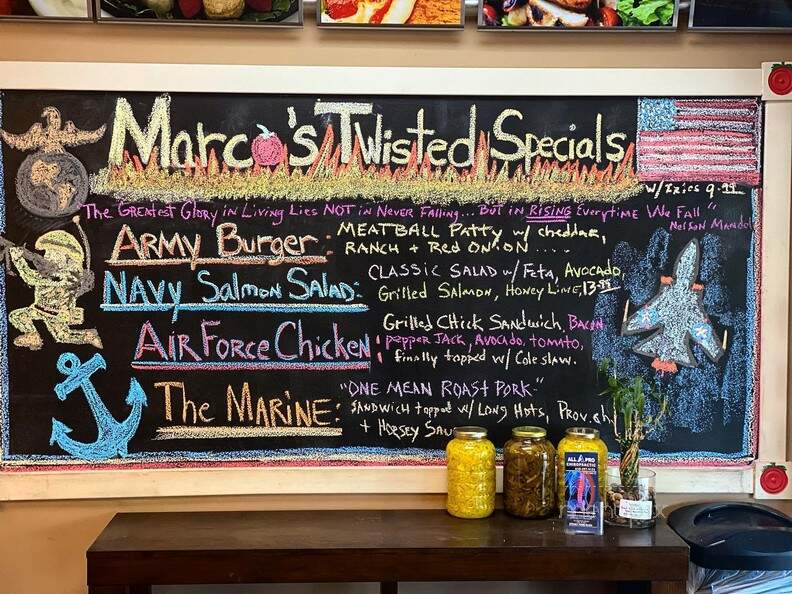 Marco's Twisted Specials
w/Izzies 9.99
"The Greatest Glory in Living Lies NOT in Never Falling... But in RISING Everytime We Fall"
Nelson Mandel
ARMY BURGER: MEATBALL Patty w/ cheddar,
RANCH + Red ONION ....
NAVY Salmon SALAD: CLASSIC SALAD w/ Feta, AVOCADO,
Grilled Salmon, Honey Lime, 13.99
AIR FORCE CHICKEN: Grilled Chick Sandwich, BACON
pepper JACK, AVOCADO, tomato,
finally topped w/ Cole slaw.
The MARINE: "ONE MEAN ROAST PORK"
SANDWICH topped w/ LONG HOTS, Prov,
+ HORSEY
ALL PRO
CHIROPRACTIC